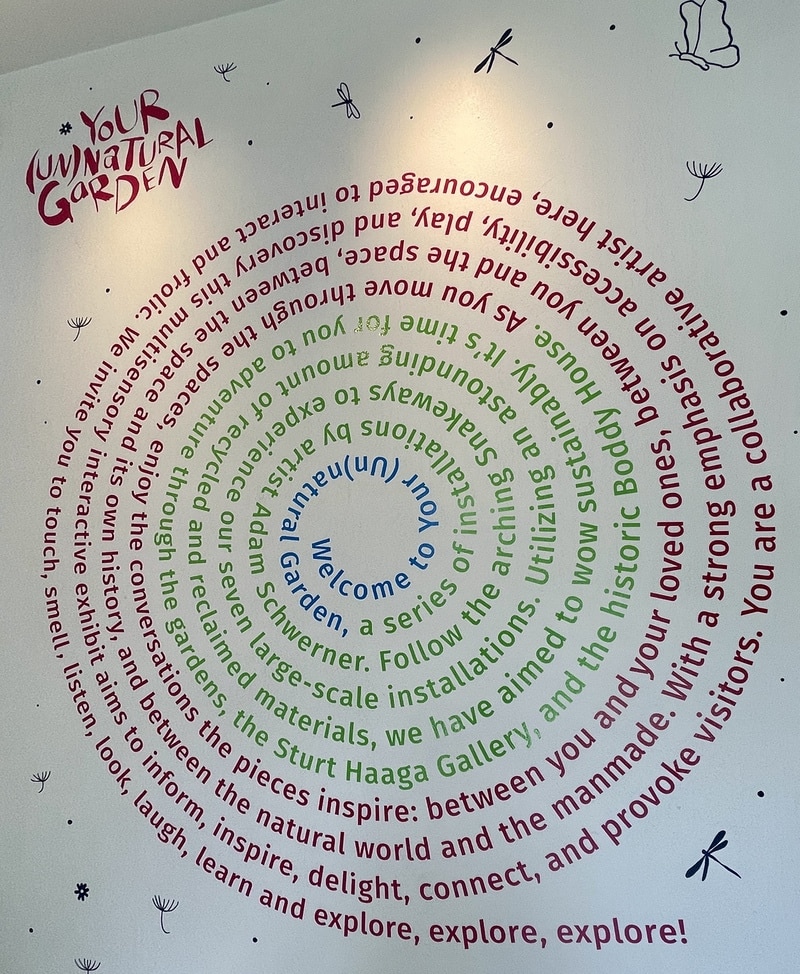 YOUR
(UN)NATURAL
GARDEN
Welcome to Your (Un)natural Garden, a series of installations by artist Adam Schwerner. Follow the arching Snakeways to experience our seven large-scale installations. Utilizing an astounding amount of recycled and reclaimed materials, we have aimed to wow sustainably. It's time for you to adventure through the gardens, the Sturt Haaga Gallery, and the historic Boddy House. As you move through the spaces, enjoy the conversations the pieces inspire: between you and your loved ones, between you and the space, between the space and its own history, and between the natural world and the manmade. With a strong emphasis on accessibility, play, and discovery this multisensory interactive exhibit aims to inform, inspire, delight, connect, and provoke visitors. You are a collaborative artist here, encouraged to interact and frolic. We invite you to touch, smell, listen, look, laugh, learn and explore, explore, explore!